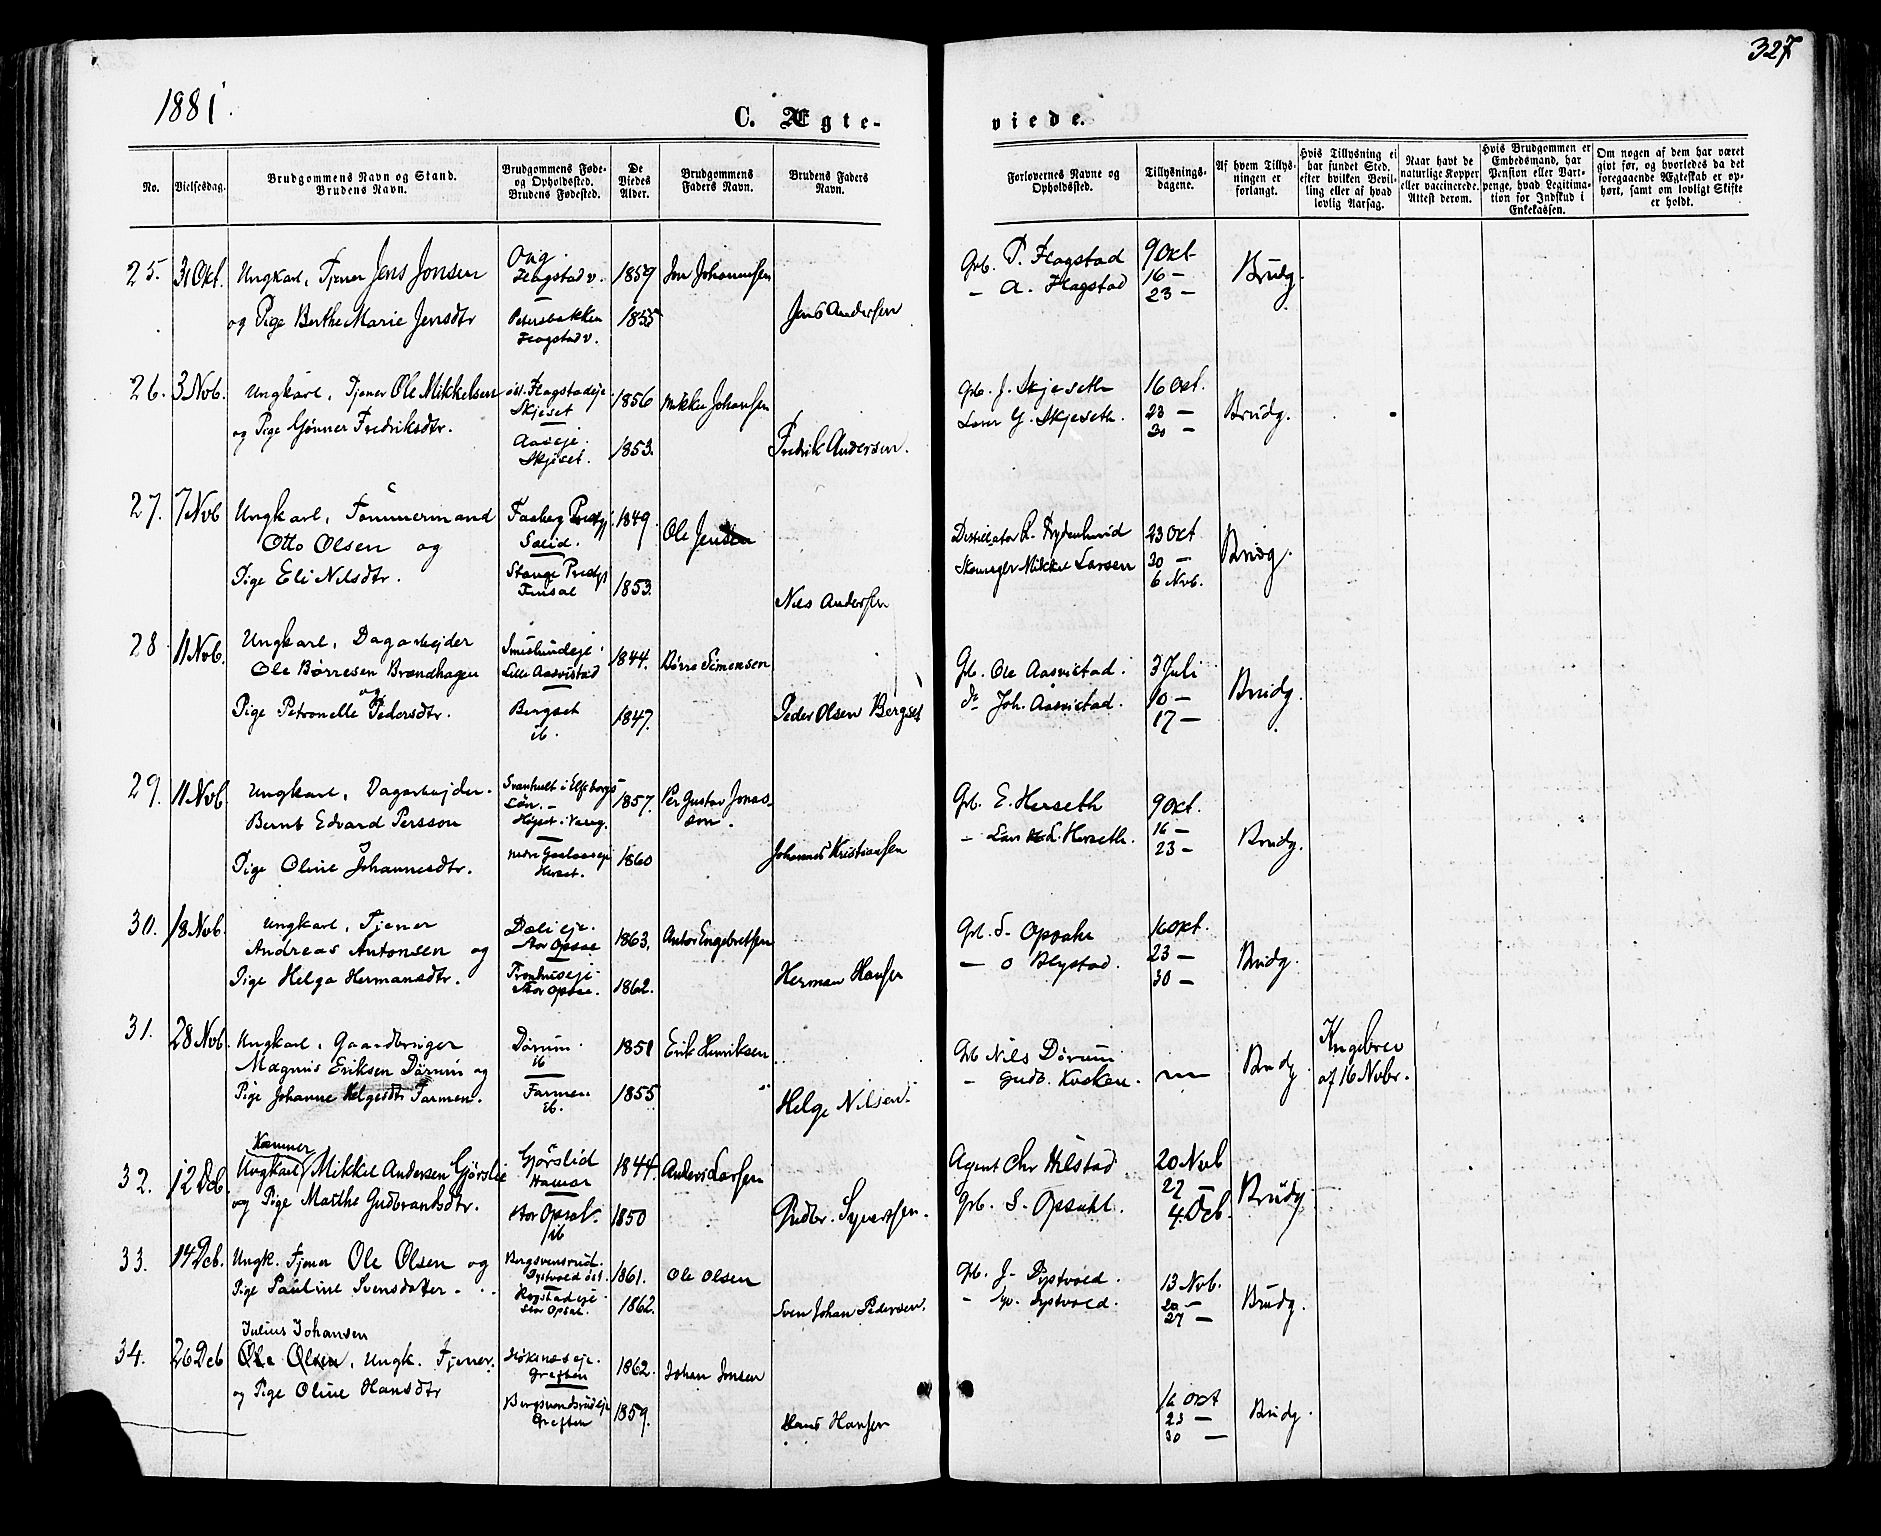 327
1881.
C. Ægte-
viede.
No.
Vielsesdag.
Brudgommens Navn og Stand.
Brudens Navn.
Brudgommens Føde-
og Opholdssted.
Brudens Fødested.
De
Viedes
Alder.
Brudgommens
Faders Navn.
Brudens Faders
Navn.
Forlovernes Navne og
Opholdssted.
Tillysnings-
dagene.
Af hvem Tillys-
ningen er
forlangt.
Hvis Tillysning ei
har fundet Sted,
efter hvilken Bevil-
ling eller af hvad
lovlig Aarsag.
Naar havt de
naturlige Kopper
eller vaccinerede.
Attest derom.
Hvis Brudgommen er
Embedsmand, har
Pension eller Vart-
penge, hvad Legitima-
tion for Indskud i
Enkekassen.
Om nogen af dem har været
givt før, og hvorledes da det
foregaaende Ægteskab er op-
hørt, samt om lovligt Skifte
er holdt.
25. 31 Okt. Ungkarl, Tjener Jens Jonsen
og Pige Berthe Marie Jensdtr
Flagstad v.
Petersbakken
Flagstad v.
1859
1855
Jon Johannesen
Jens Andersen
Grb. P. Flagstad
— A. Flagstad
9 Okt
16 —
23 —
Brudg.
26. 3 Nob. Ungkarl, Tjener Ole Mikkelsen
og Pige Gønner Fredriksdtr.
øst. Flagstadeje
Skjeset
Aaseje.
Skjeset.
1856
1853.
Mikkel Johansen
Fredrik Andersen.
Grb. J. Skjeseth
Laver G. Skjeseth.
16 Oct.
23 —
30 —
Brudg.
27. 7 Nob Ungkarl, Tømmermand
Otto Olsen og
Pige Eli Nilsdtr.
Faaberg Prestgj
Solid.
Stange Prestgj
Finsal
1849
1853.
Ole Jensen
Nils Andersen
Destillatør L. Frydenlund
Mikkel Larsen
23 Oct
30 —
6 Nob.
Brudg.
28 11 Nob. Ungkarl, Dagarbejder
Ole Børresen Brændhagen
og
Pige Petronelle Pedersdtr.
Smeslundeje.
Lille Aasvistad
Bergset
ib.
1844.
1847.
Børre Simensen
Peder Olsen Bergset
Gb. Ole Aasvistad.
do Joh. Aasvistad.
3 Juli
10 —
17 —
Brudg.
29. 11 Nob Ungkarl, Dagarbejder.
Bernt Edvard Persson
Pige Oline Johannesdtr.
Svanhult i Elfsborgs
Län. —
Høset i Vang.
nedre Gaalaaseje
Herset.
1857.
1860
Per Gustav Jonas-
son.
Johannes Kristiansen
Grb. E. Herseth
— Lars L. Herseth.
9 Oct.
16 —
23 —
Brudg.
30. 18 Nob. Ungkarl, Tjener
Andreas Antonsen og
Pige Helga Hermansdtr.
Dalieje.
Stor Opsal
Tronhuseje
Stor Opsal.
1863.
1862.
Anton Engebretsen
Herman Hansen
Grb. S. Opsahl
— O Blystad.
16 Oct.
23 —
30 —
Brudg.
31. 28 Nob. Ungkarl, Gaardbruger
Magnus Eriksen Dørum og
Pige Johanne Helgesdtr Farmen.
Dørum.
ib
Farmen
ib.
1851
1855
Erik Henriksen
Helge Nilsen.
Grb Nils Dørum
— Gudb. Kvsken.
Brudg.
Kngebrev
af 16 Nobr.
Kæmner
32. 12 Deb. Ungkarl Mikkel Andersen Gjørslie
og Pige Marthe Gudbrandsdtr.
Gjørslid
Hamar
Stor Opsal.
ib
1844.
1850
Anders Larsen
Gudbr. Syversen.
Agent Chr Hilstad.
Grb. S. Opsahl.
20 Nob
27 —
4 Deb.
Brudg.
33. 14 Deb. Ungk. Tjener Ole Olsen og
Pige Pauline Svensdatter.
Bergsvensrud.
Dystvold øst.
Rogstadeje
Stor Opsal.
1861.
1862.
Ole Olsen
Sven Johan Pedersen.
Gb. J. Dystvold.
— Sys. Dystvold.
13 Nob.
20 —
27 —
Brudg.
Julius Johansen
34. 26 Deb Ole Olsen, Ungk. Tjener.
og Pige Oline Hansdtr
Høkenæseje.
Greften
Bergsvendsrudeje
Greften
1862.
1859.
Johan Jonsen
Hans Hansen
16 Oct
23 —
30 —
Brudg.